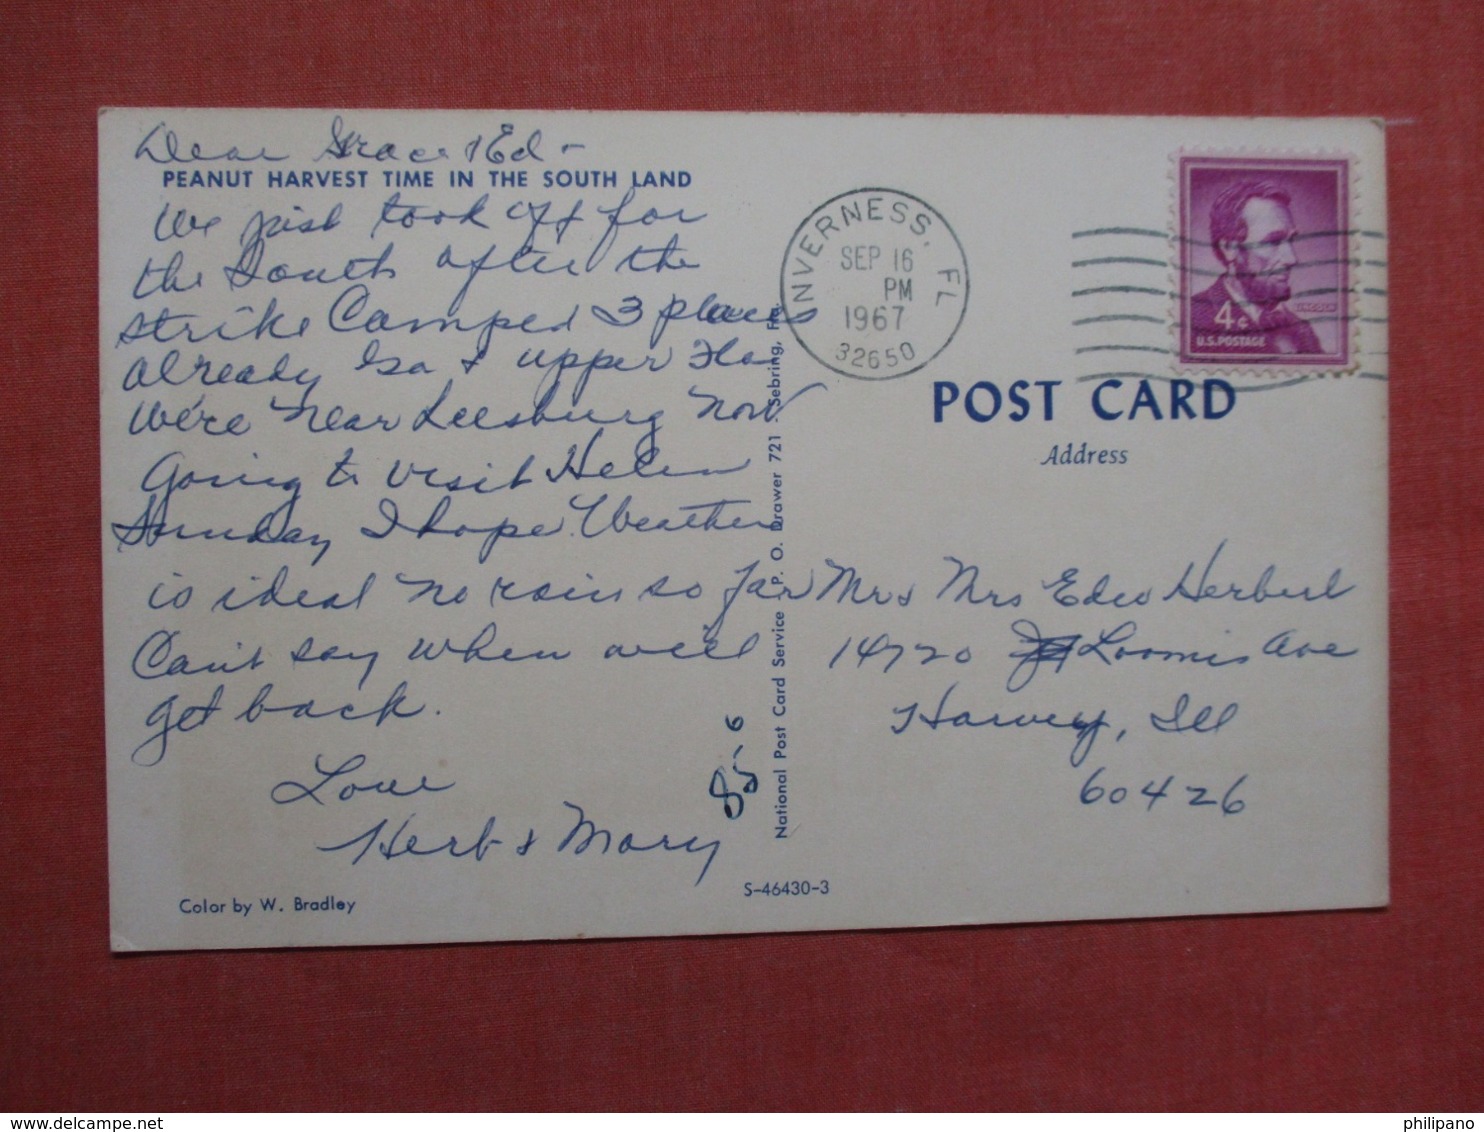 Dear Grace & Ed -
PEANUT HARVEST TIME IN THE SOUTH LAND
We just took off for
the South after the
strike Camped 3 places
already Ga & upper Fla
We're near Leesburg Now
Going to visit Helen
Sunday I hope. Weather
is ideal no rain so far
Can't say when we'll
get back.
Love
Herb & Mary
85-6
Color by W. Bradley
S-46430-3
National Post Card Service P. O. Drawer 721 - Sebring, Fla.
INVERNESS, FL
SEP 16
PM
1967
32650
LINCOLN
4¢
U.S. POSTAGE
POST CARD
Address
Mr & Mrs Edw Herbert
14720 Loomis Ave
Harvey, Ill
60426
delcampe.net
philipano